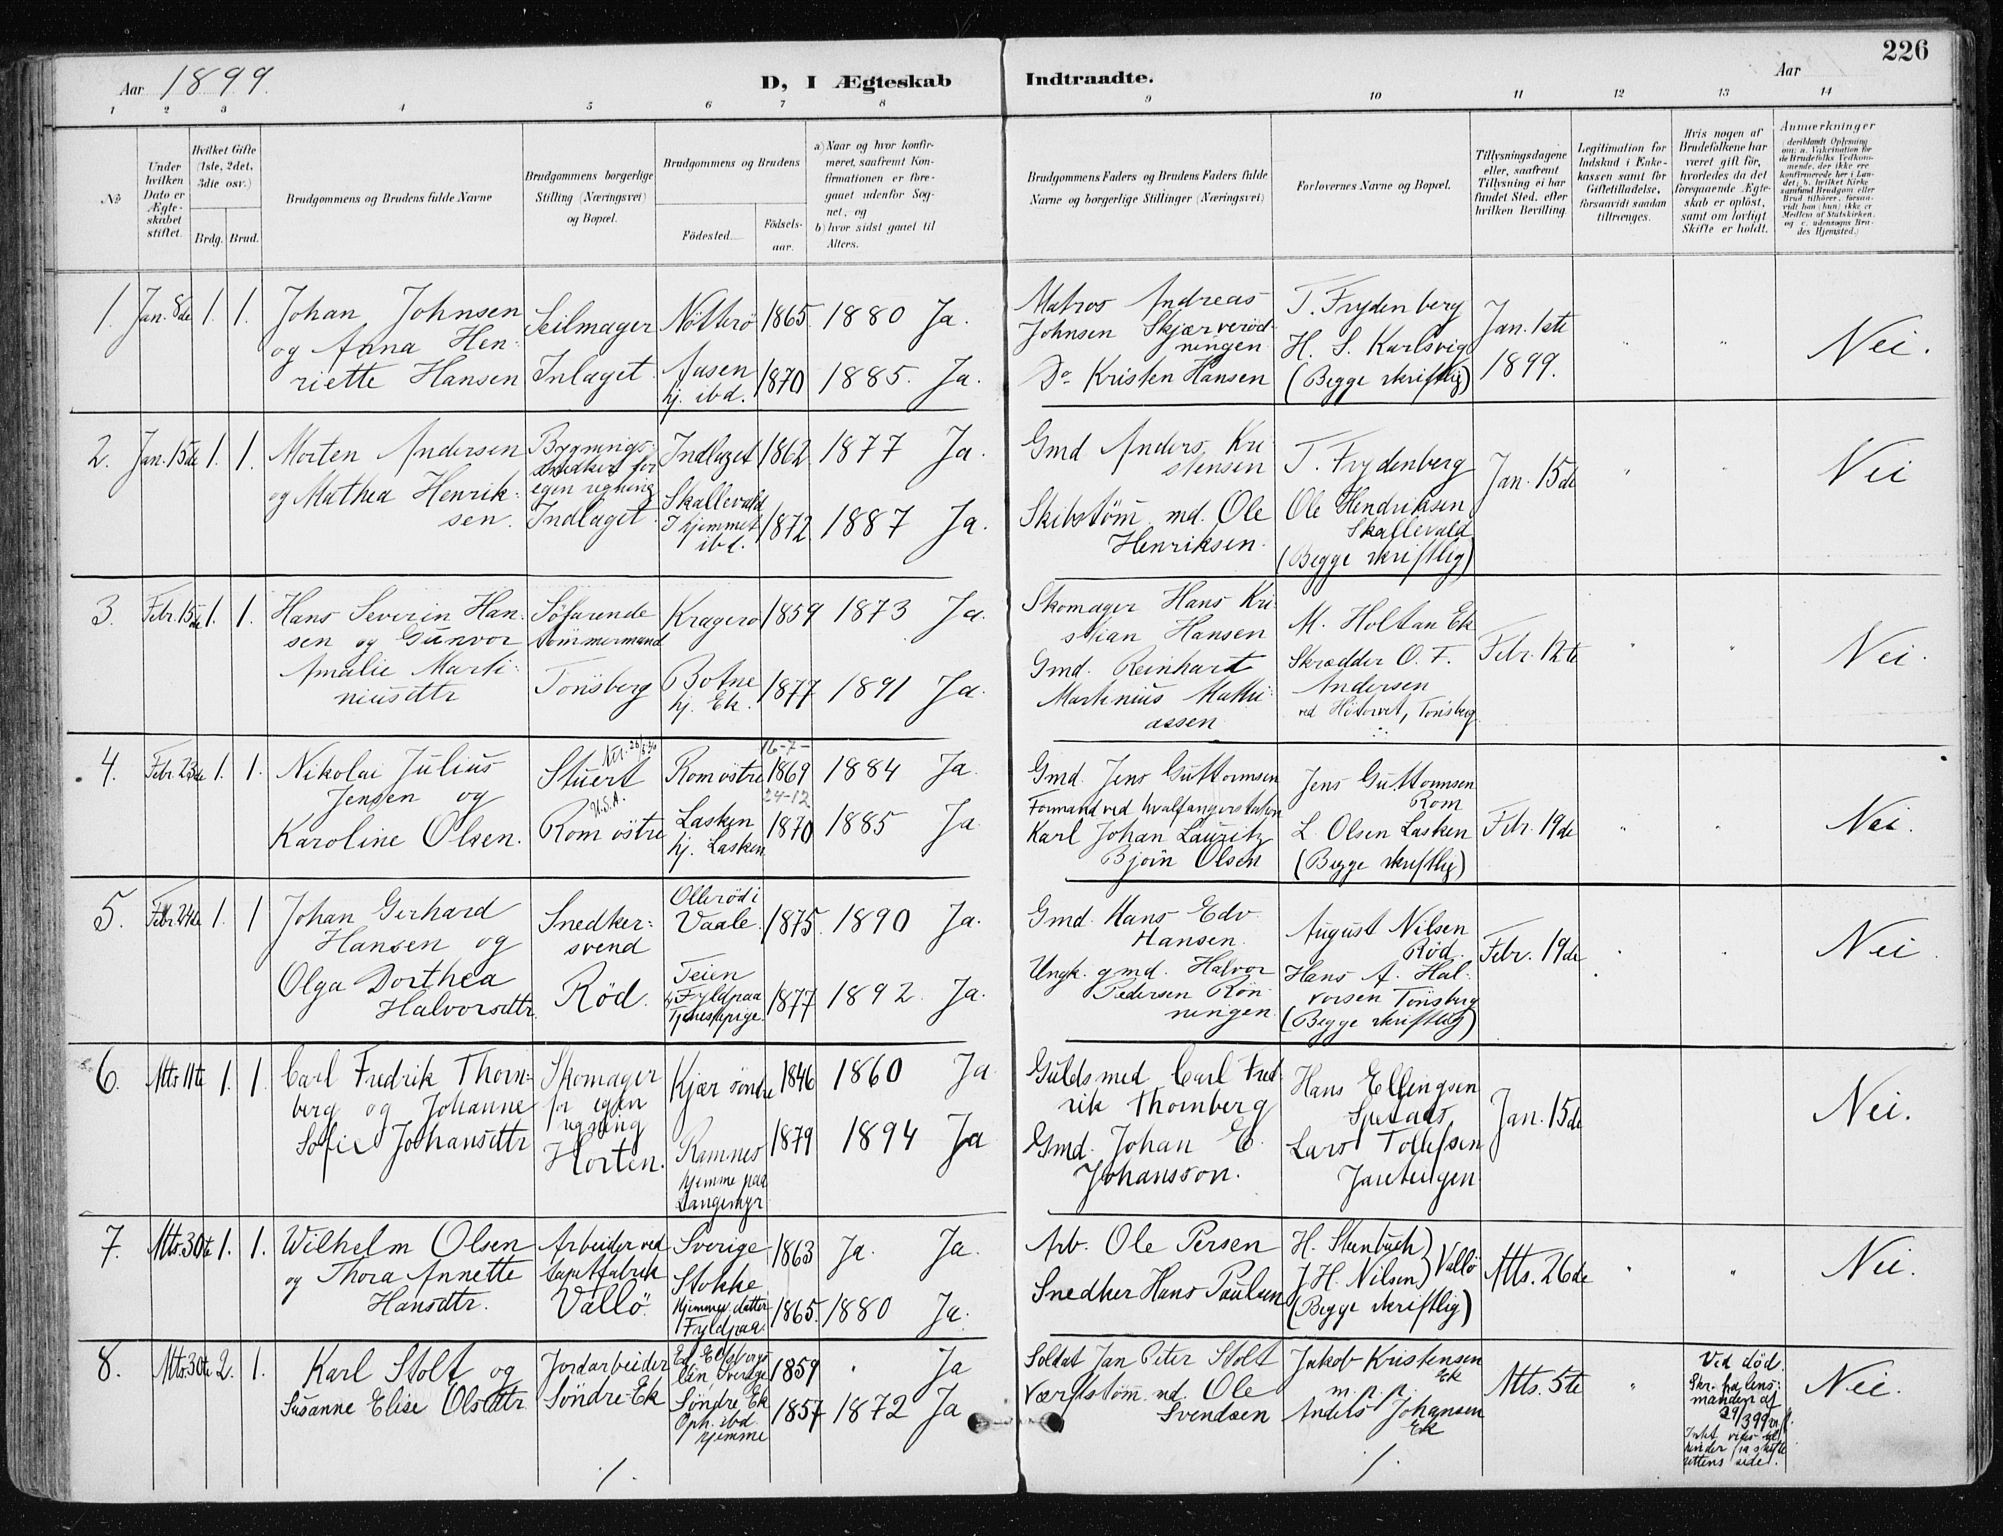 226
Aar 1899.
D, I Ægteskab Indtraadte.
Aar
1 2 3 4 5 6 7 8 9 10 11 12 13 14
No
Under hvilken Dato er Ægteskabet stiftet.
Hvilket Gifte (1ste, 2det, 3die osv.)
Brdg. Brud.
Brudgommens og Brudens fulde Navne
Brudgommens borgerlige Stilling (Næringsvei) og Bopæl.
Brudgommens og Brudens
Fødested.
Fødselsaar.
a) Naar og hvor konfirmeret, saafremt Konfirmationen er foregaaet udenfor Sognet, og
b) hvor sidst gaaet til Alters.
Brudgommens Faders og Brudens Faders fulde Navne og borgerlige Stillinger (Næringsvei)
Forlovernes Navne og Bopæl.
Tillysningsdagene eller, saafremt Tillysning ei har fundet Sted, efter hvilken Bevilling.
Legitimation for Indskud i Enkekassen samt for Giftetilladelse, forsaavidt saadan tiltrænges.
Hvis nogen af Brudefolkene har været gift før, hvorledes da det foregaaende Ægteskab er opløst, samt om lovligt Skifte er holdt.
Anmærkninger
1. Jan. 8de 1. 1. Johan Johnsen
og Anna Hen-
riette Hansen
Seilmager
Inlaget.
Nötterö 1865. 1880 Ja.
Aasen
hj. ibd. 1870 1885. Ja.
Matros Andreas
Johnsen Skjærveröd-
ningen
Do. Kristen Hansen
T. Frydenberg
H. S. Karlsvig
(Begge skriftlig)
Jan. 1ste
1899.
Nei.
2. Jan. 15de 1. 1. Morten Andersen
og Mathea Henrik-
sen.
Bygnings-
snedker for
egen regning
Indlaget.
Indlaget 1862 1877 Ja.
Skallevald
I hjemmet
ibd. 1872 1887 Ja.
Gmd Anders Kri-
stensen
Skibstöm. md. Ole
Henriksen.
T. Frydenberg
Ole Hendriksen
Skallevald
(Begge skriftlig)
Jan. 15de
Nei
3. Febr. 15de 1. 1. Hans Severin Han-
sen og Gunvor
Amalie Marti-
niusdtr
Söfarende
tömmermand
Tönsberg
Kragerö 1859 1873 Ja.
Botne
hj. Ek. 1877 1891 Ja.
Skomager Hans Kri-
stian Hansen
Gmd. Reinhart
Martinius Mathi-
assen
M. Holtan Ek
Skrædder O. T.
Andersen
Tönsberg
Febr. 12te
Nei.
4. Febr. 23de 1. 1. Nikolai Julius
Jensen og
Karoline Olsen.
Stuert
U.S.A.
Rom östre
16-7-
Rom östre 1869 1884 Ja.
24-12
Lasken
hj. Lasken 1870 1885 Ja.
Gmd. Jens Guttormsen
Formand ved hvalfangerstation
Karl Johan Lauritz
Bjørn Olsen
Jens Guttormsen
Rom
L. Olsen Lasken
(Begge skriftlig)
Febr. 19de
Nei.
5. Febr. 24de 1. 1 Johan Gerhard
Hansen og
Olga Dorthea
Halvorsdtr.
Snedker-
svend
Röd.
Olleröd i
Vaale. 1875. 1890 Ja.
Teien
Fyldpaa
Tjenestepige. 1877 1892. Ja.
Gmd. Hans Edv.
Hansen.
Ungk. gmd. Halvor
Pedersen Rön-
ningen
August Nilsen
Röd.
Hans A. Hal-
vorsen Tönsberg
(Begge skriftlig)
Febr. 19de
Nei
6. Mts 11te 1. 1. Carl Fredrik Thorn-
berg og Johanne
Sofie Johansdtr
Skomager
for egen
regning
Horten.
Kjær söndre 1846 1860 Ja
Ramnes
hjemme paa
Langemyr 1879 1894 Ja
Guldsmed Carl Fred-
rik Thornberg
Gmd. Johan E.
Johansson.
Hans Ellingsen
Lars Tollefsen
Jan. 15de
Nei.
7. Mts. 30te 1. 1. Wilhelm Olsen
og Thora Annette
Hansdtr.
Arbeider ved
tapetfabrik
Vallö.
Sverige 1863 Ja. Ja.
Stokke
hjemmev. datter
Fyldpaa. 1865. 1880 Ja.
Arb. Ole Persen
Snedker Hans Paulsen
H. Steinbuch)
J. H. Nilsen) Vallö
(Begge skriftlig)
Mts. 26de
Nei.
8. Mts. 30te 2. 1. Karl Stolt og
Susanne Elise Olsdtr
Jordarbeider
Söndre-Ek
Sverige 1859 Ja
Söndre Ek
Oph. ibd.
hjemme 1857 1872 Ja
Soldat Jan Peter Stolt
Værftstöm. md. Ole
Svendsen
Jakob Kristensen
Ek
m. p. p.
Anders Johansen
Ek
Mts. 5te
Ved död.
Skr. fra lens-
manden af
29/3 99
Nei.